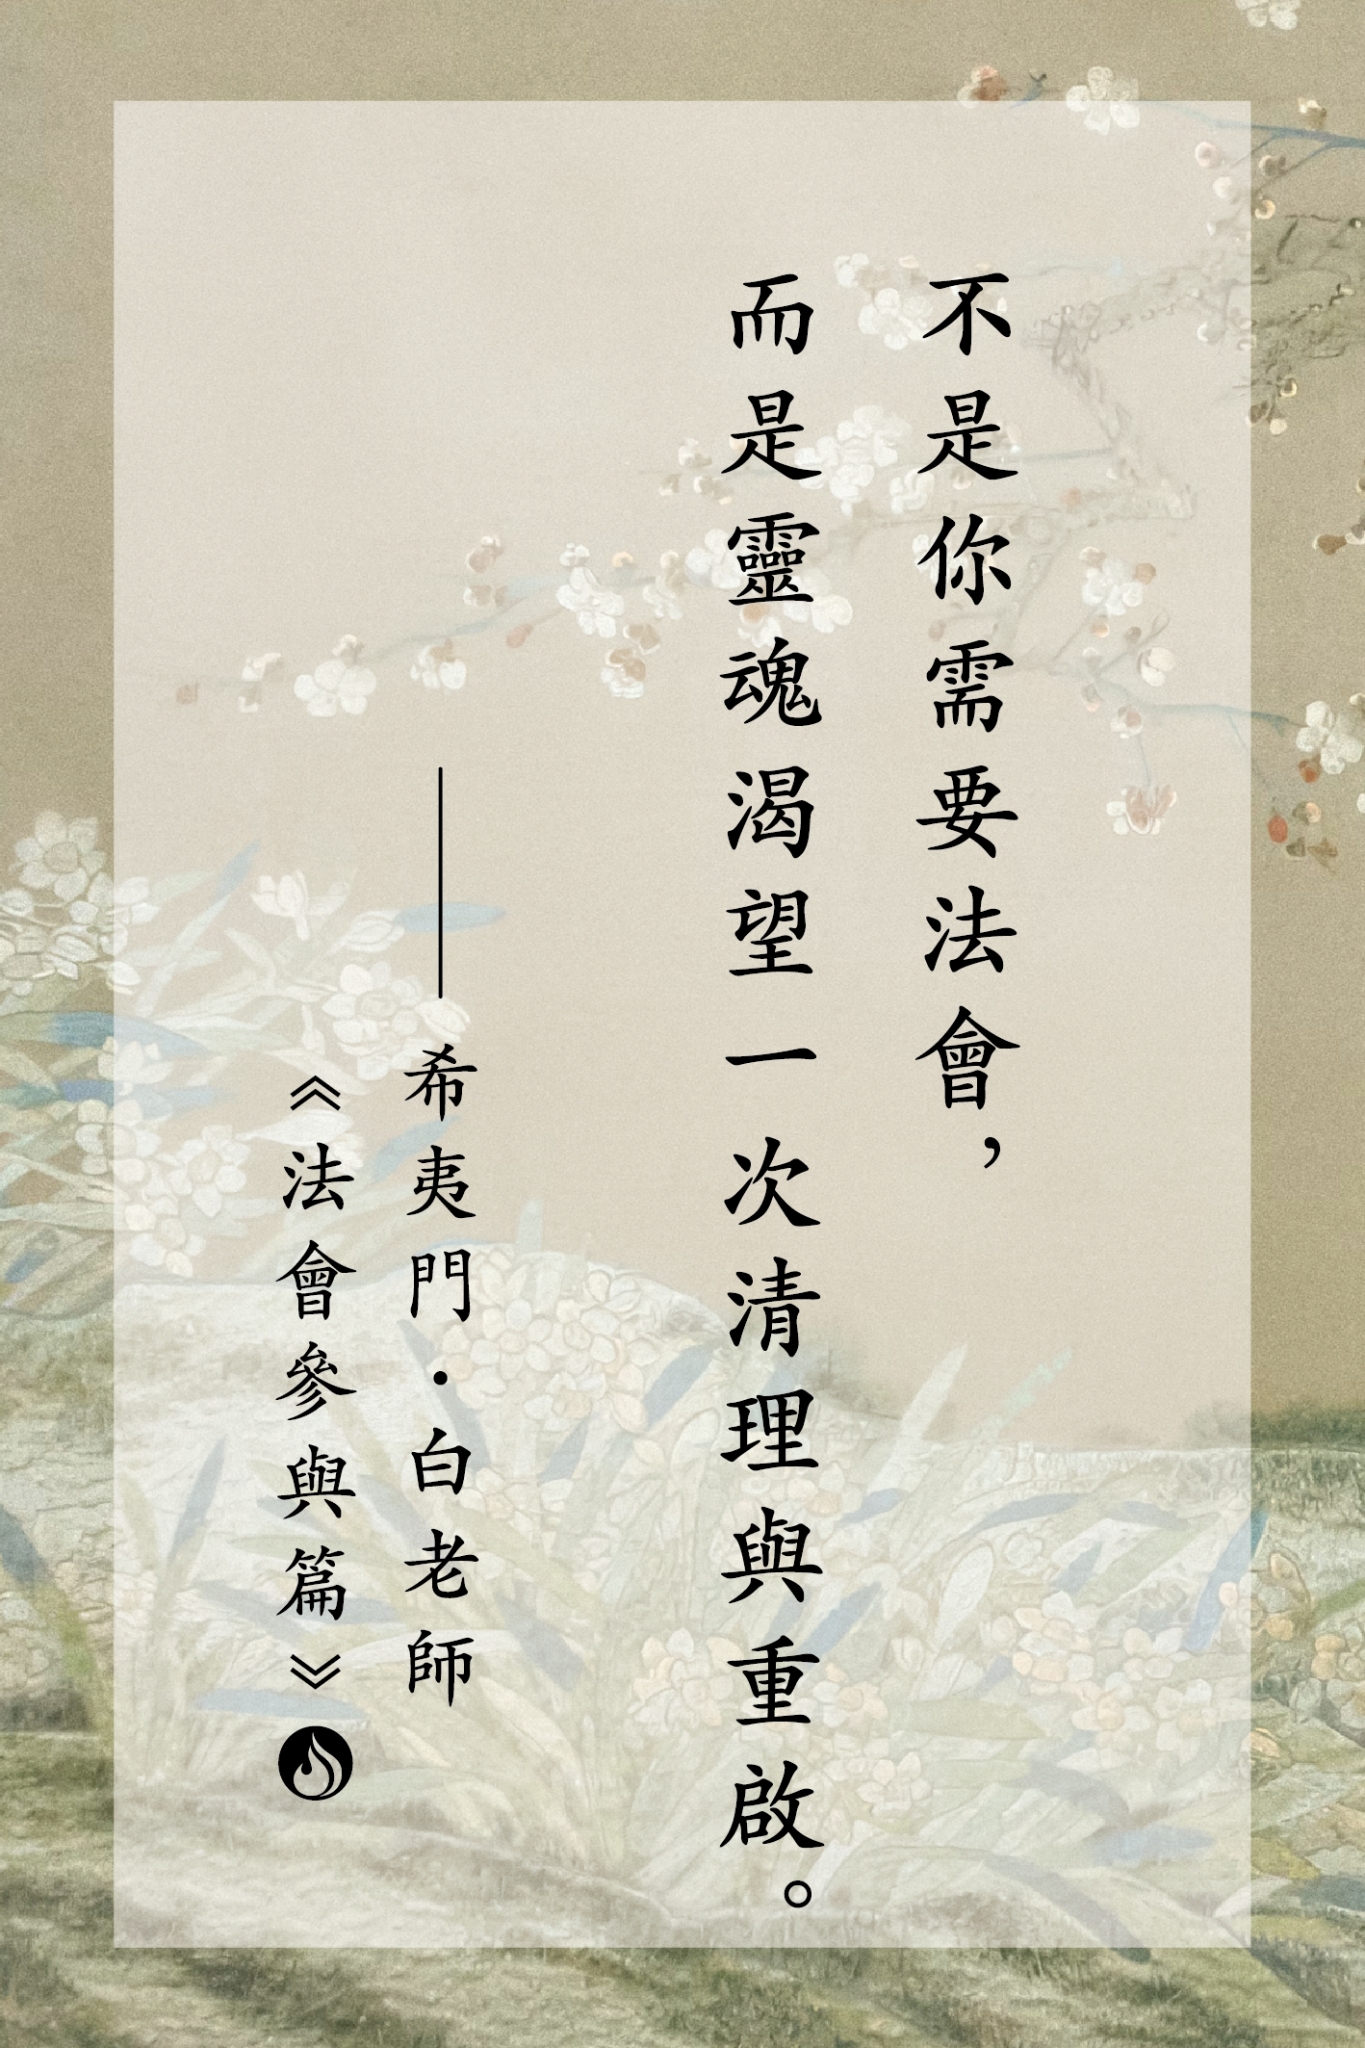 不是你需要法會，
而是靈魂渴望一次清理與重啟。
——希夷門・白老師
《法會參與篇》